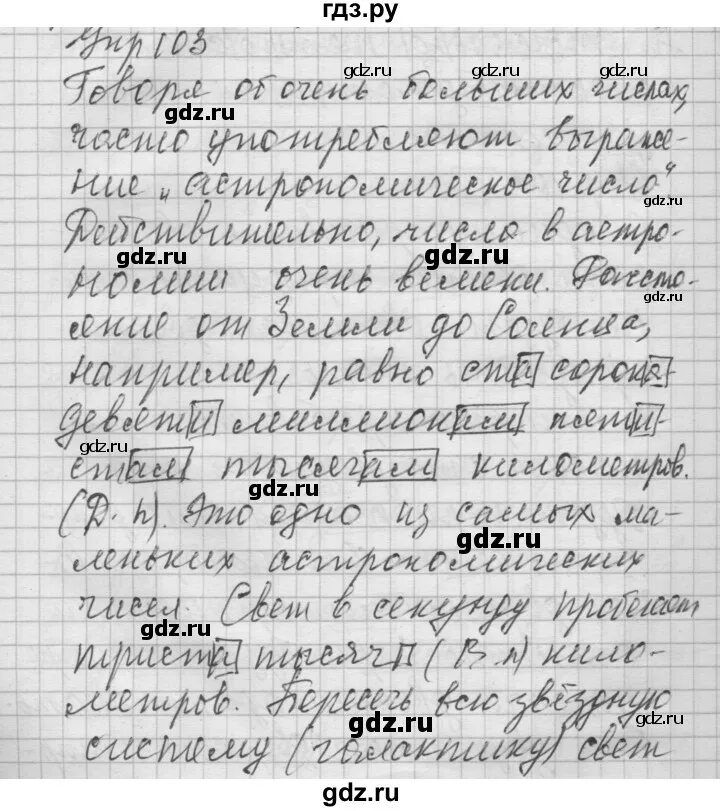 гдз.ру
Упр 103
Говоря об очень больших числах,
часто употребляют выраже-
ние „астрономическое число"
Действительно, числа в астро-
номии очень велики. Рассто-
яние от Земли до Солнца,
например, равно ста сорока
девяти миллионам пяти-
стам тысячам километров.
(Д. п). Это одно из самых ма-
леньких астрономических
чисел. Свет в секунду пробегает
триста тысяч (В. п) кило-
метров. Пересечь всю звёздную
систему (галактику) свет
gdz.ru
gdz.ru
gdz.ru
gdz.ru
gdz.ru
gdz.ru
gdz.ru
gdz.ru
gdz.ru
gdz.ru
gdz.ru
gdz.ru
gdz.ru
gdz.ru
gdz.ru
gdz.ru
gdz.ru